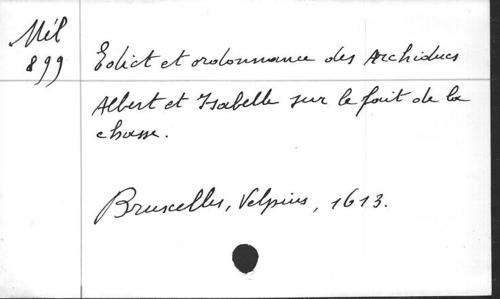 Mél
899
Edict et ordonnance des Archiducs
Albert et Isabelle sur le fait de la
chasse.
Bruxelles, Velpius, 1613.